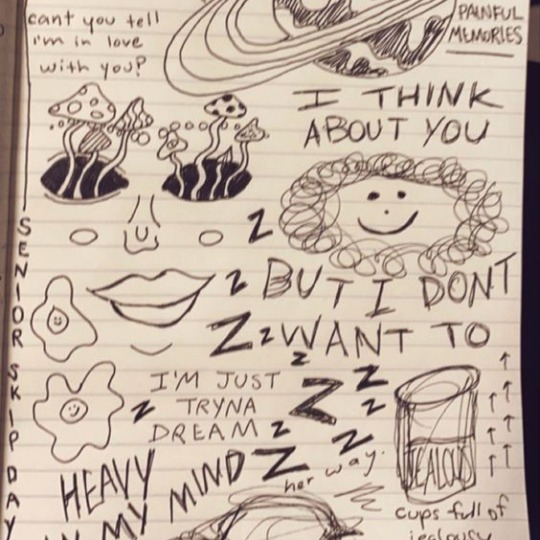 cant you tell
i'm in love
with you?
PAINFUL
MEMORIES
I THINK
ABOUT YOU
SENIOR SKIP DAY
Z
Z BUT I DONT
Z Z WANT TO
Z
I'M JUST
TRYNA
DREAM
Z
Z
Z
Z
Z
Z
Z
HEAVY
IN MY MIND
her way.
JEALOUS
cups full of
jealousy